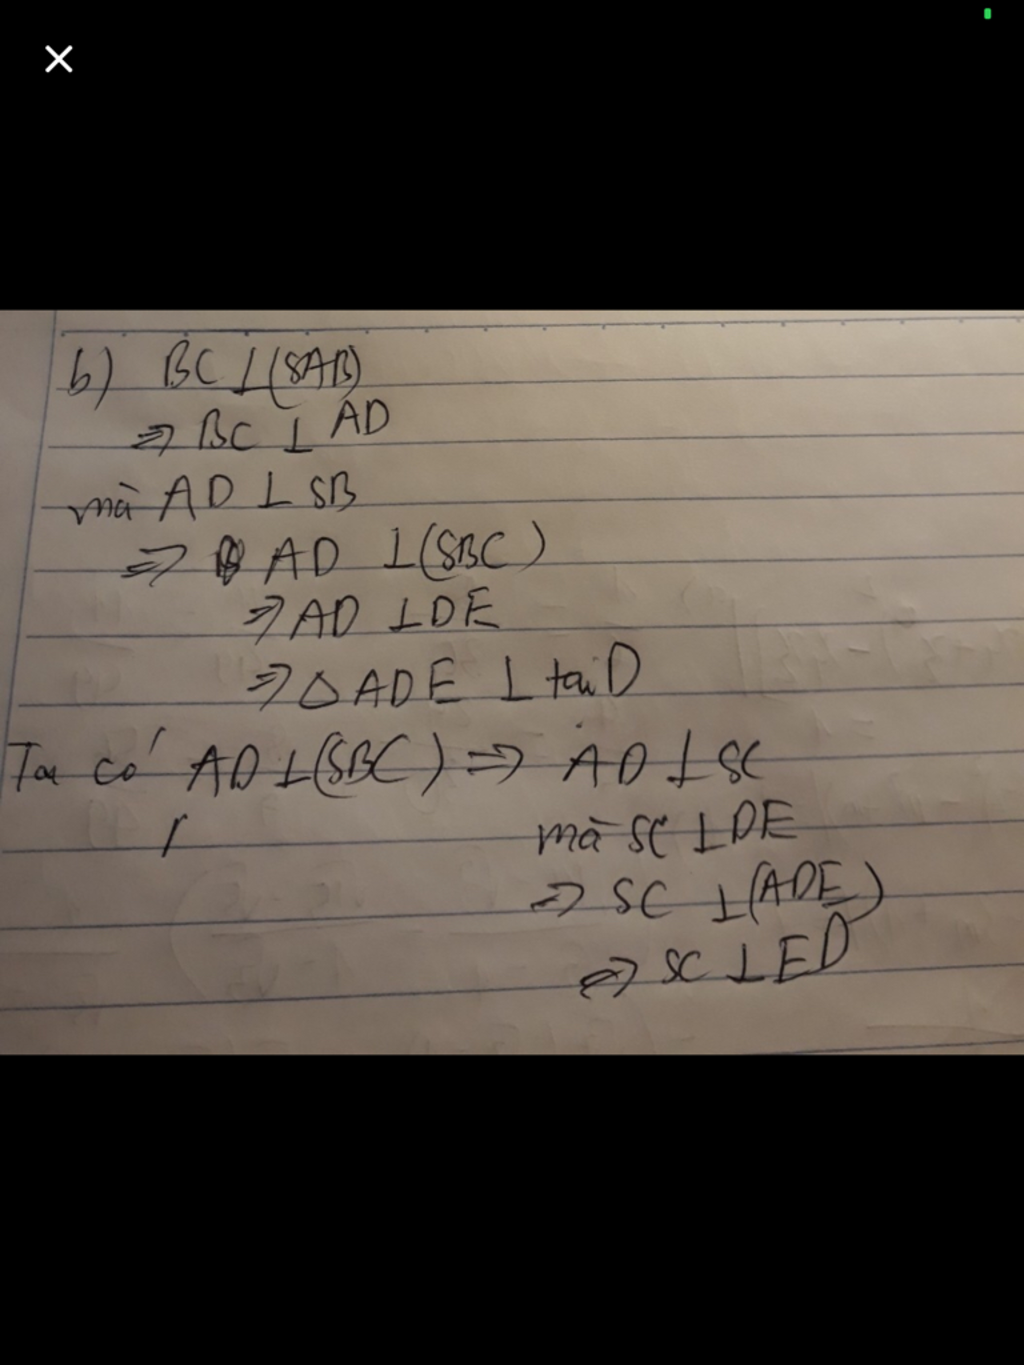 b) BC ⊥ (SAB)
⇒ BC ⊥ AD
mà AD ⊥ SB
⇒ AD ⊥ (SBC)
⇒ AD ⊥ DE
⇒ △ADE ⊥ tại D
Ta có AD ⊥ (SBC) ⇒ AD ⊥ SC
mà SC ⊥ DE
⇒ SC ⊥ (ADE)
⇒ SC ⊥ ED